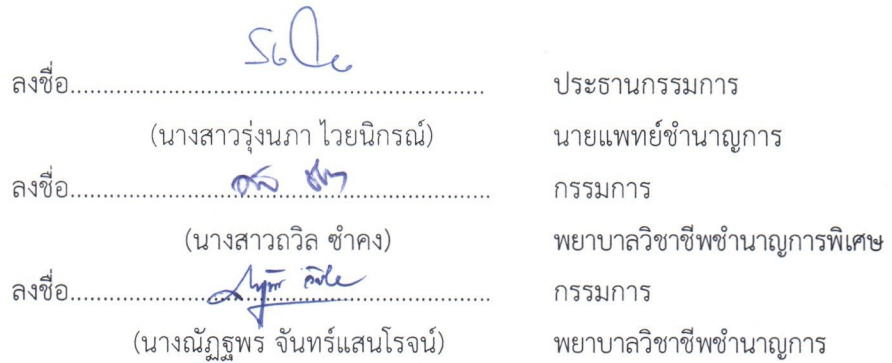 ลงชื่อ............................................................ ประธานกรรมการ
(นางสาวรุ่งนภา ไวยนิกรณ์) นายแพทย์ชำนาญการ
ลงชื่อ............................................................ กรรมการ
(นางสาวถวิล ซำคง) พยาบาลวิชาชีพชำนาญการพิเศษ
ลงชื่อ............................................................ กรรมการ
(นางณัฏฐพร จันทร์แสนโรจน์) พยาบาลวิชาชีพชำนาญการ